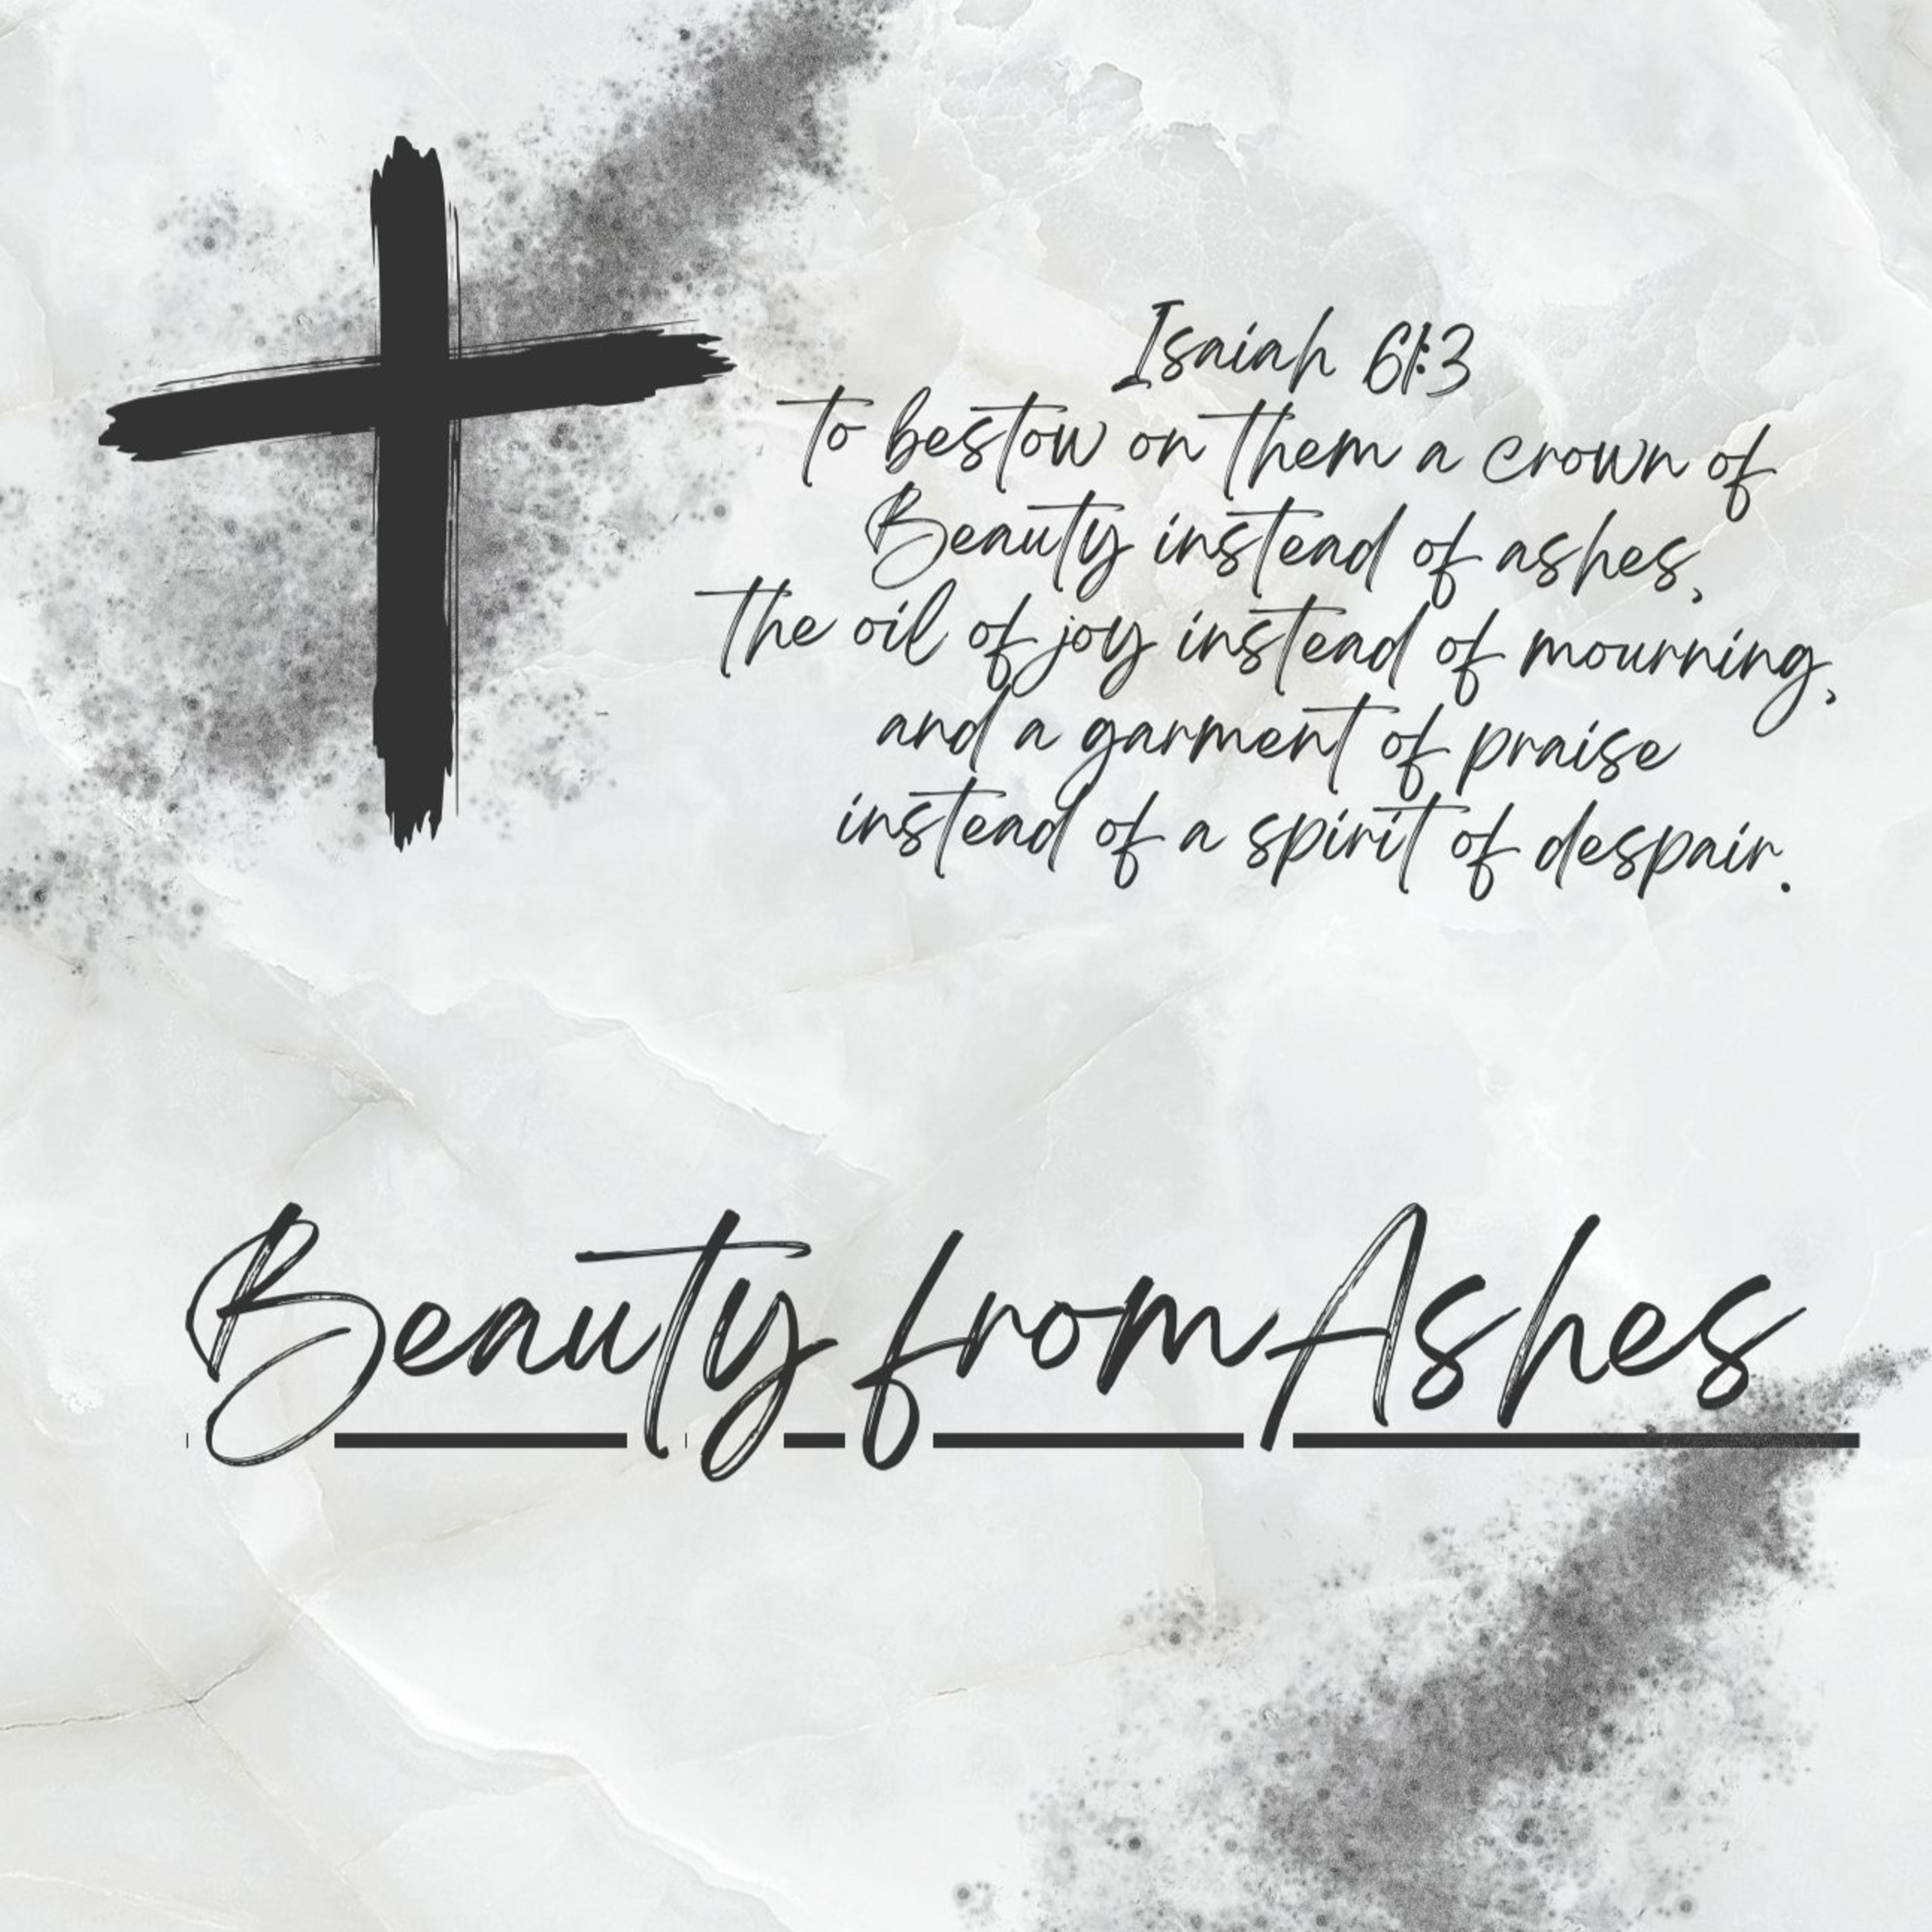 Isaiah 61:3
to bestow on them a crown of
Beauty instead of ashes,
the oil of joy instead of mourning,
and a garment of praise
instead of a spirit of despair.
Beauty from Ashes